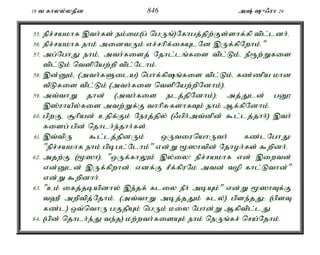 19 வ காலல்லதீன 846 அஷ் ஷுஃரா 26
55. நிச்சயமாக இவர்கள் நம்மை(ப் பெருங்)கோபத்திற்குள்ளாக்கி விட்டனர்.
56. நிச்சயமாக நாம் அனைவரும் எச்சரிக்கையுடனே இருக்கிறோம்."
57. அப்போது நாம், அவர்களைத் தோட்டங்களை விட்டும், நீரூற்றுகளை
விட்டும் வெளியேற்றி விட்டோம்.
58. இன்னும், (அவர்களுடைய) பொக்கிஷங்களை விட்டும், கண்ணிய மான
வீடுகளை விட்டும் (அவர்களை வெளியேற்றினோம்);
59. அவ்வாறு தான் (அவர்களை நடத்தினோம்); அத்துடன் பனூ
இஸ்ராயீல்களை அவற்றுக்கு வாரிசுகளாகவும் நாம் ஆக்கினோம்.
60. பிறகு, சூரியன் உதிக்கும் நேரத்தில் (ஃபிர்அவ்னின் கூட்டத்தார்) இவர்
களைப் பின் தொடர்ந்தார்கள்.
61. இவ்விரு கூட்டத்தினரும் ஒருவரையொருவர் கண்டபோது:
"நிச்சயமாக நாம் பிடிபட்டோம்" என்று மூஸாவின் தோழர்கள் கூறினர்.
62. அதற்கு (மூஸா), "ஒருக்காலும் இல்லை! நிச்சயமாக என் இறைவன்
என்னுடன் இருக்கிறான். எனக்கு சீக்கிரமே அவன் வழி காட்டுவான்"
என்று கூறினார்.
63. "உம் கைத்தடியினால் இந்தக் கடலை நீர் அடியும்" என்று மூஸாவுக்கு
வஹீ அறிவித்தோம். (அவ்வாறு அடித்ததும் கடல்) பிளந்தது; (பிளவு
கண்ட) ஒவ்வொரு பகுதியும் பெரும் மலை போன்று ஆகிவிட்டது.
64. (பின் தொடர்ந்து வந்த) மற்றவர்களையும் நாம் நெருங்கச் செய்தோம்.